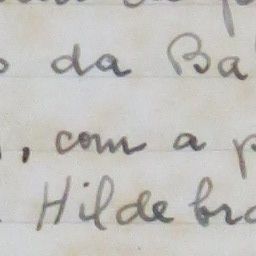 da Ba
, com a p
Hildebra